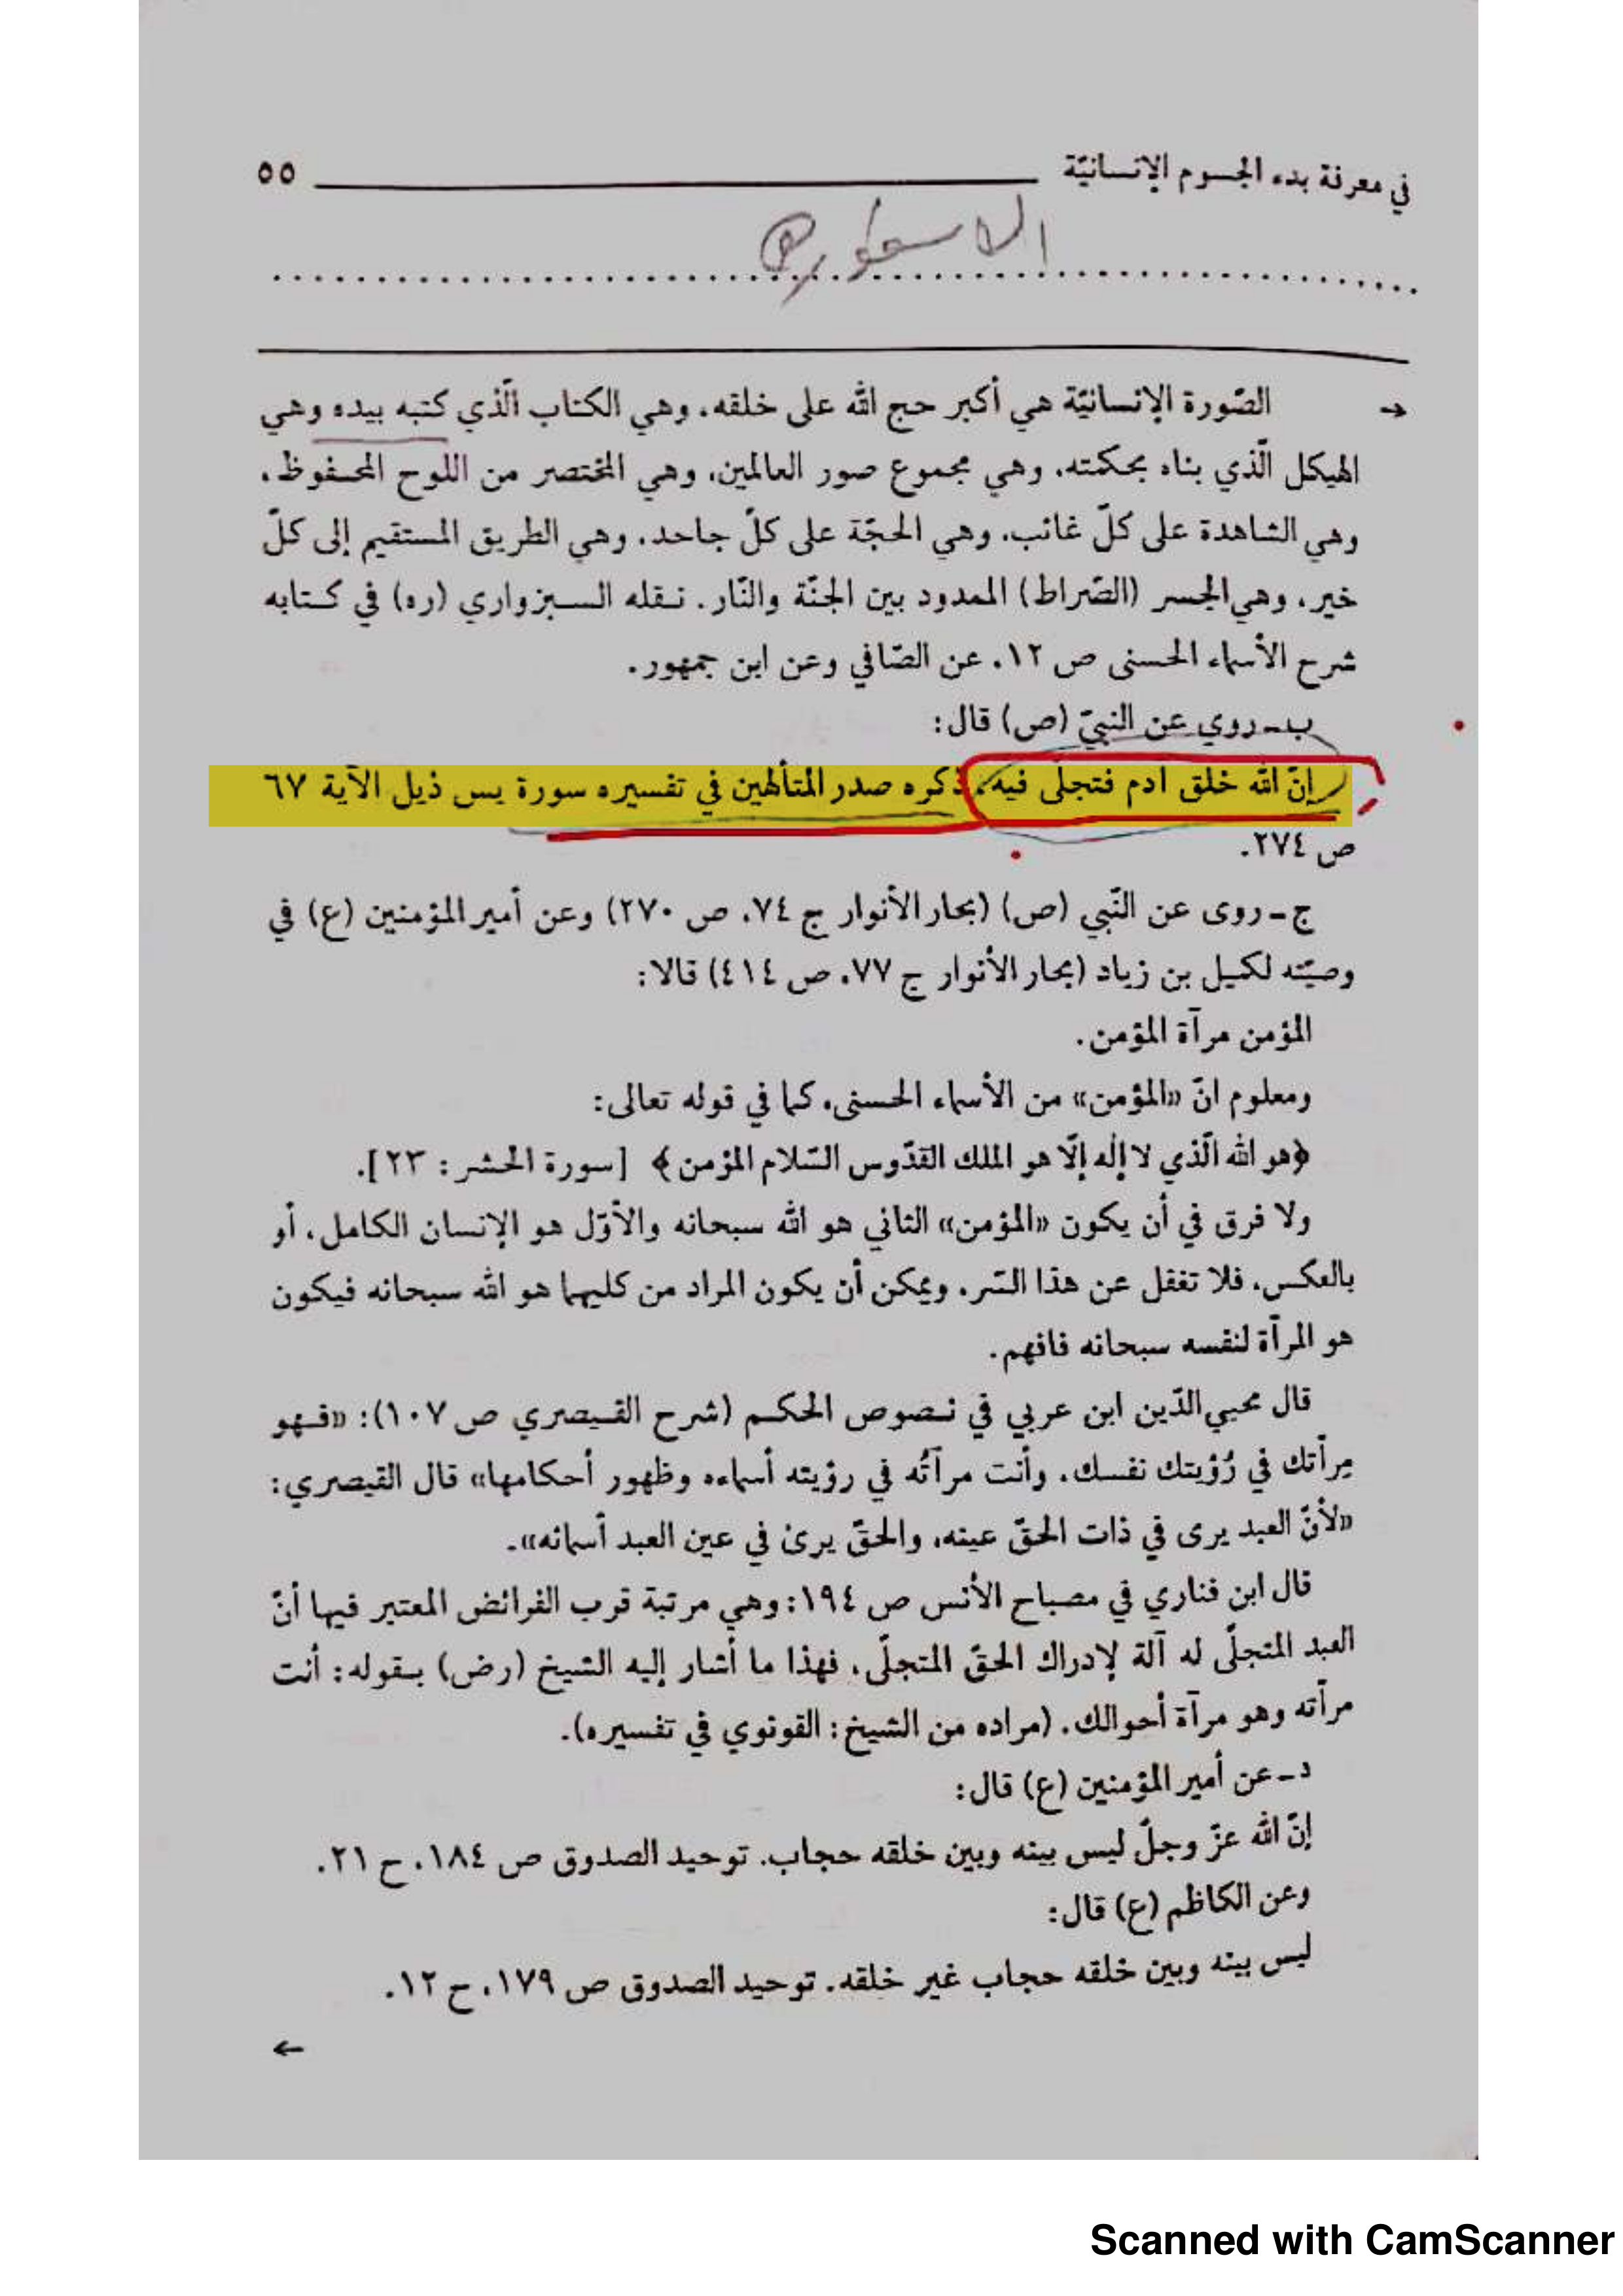 في معرفة بدء الجسوم الإنسانيّة ٥٥
الاسطوره
→ الصّورة الإنسانيّة هي أكبر حج الله على خلقه، وهي الكتاب الّذي كتبه بيده وهي
الهيكل الّذي بناه بحكمته، وهي مجموع صور العالمين، وهي المختصر من اللوح المحفوظ،
وهي الشاهدة على كلّ غائب، وهي الحجّة على كلّ جاحد، وهي الطريق المستقيم إلى كلّ
خير، وهي الجسر (الصّراط) الممدود بين الجنّة والنّار. نقله السبزواري (ره) في كتابه
شرح الأسماء الحسنى ص ١٢، عن الصّافي وعن ابن جمهور.
ب ـ روي عن النبيّ (ص) قال:
إنّ الله خلق آدم فتجلّى فيه، ذكره صدر المتألهين في تفسيره سورة يس ذيل الآية ٦٧
ص ٢٧٤.
ج ـ روى عن النّبي (ص) (بحار الأنوار ج ٧٤، ص ٢٧٠) وعن أمير المؤمنين (ع) في
وصيّته لكميل بن زياد (بحار الأنوار ج ٧٧، ص ٤١٤) قالا:
المؤمن مرآة المؤمن.
ومعلوم انّ «المؤمن» من الأسماء الحسنى، كما في قوله تعالى:
﴿هو الله الّذي لا إله إلّا هو الملك القدّوس السّلام المؤمن﴾ [سورة الحشر: ٢٣].
ولا فرق في أن يكون «المؤمن» الثاني هو الله سبحانه والأوّل هو الإنسان الكامل، أو
بالعكس، فلا تغفل عن هذا السّر، ويمكن أن يكون المراد من كليهما هو الله سبحانه فيكون
هو المرآة لنفسه سبحانه فافهم.
قال محيي الدّين ابن عربي في نصوص الحكم (شرح القيصري ص ١٠٧): «فهو
مِرآتك في رُؤيتك نفسك، وأنت مرآتُه في رؤيته أسماءه وظهور أحكامها» قال القيصري:
«لأنّ العبد يرى في ذات الحقّ عينه، والحقّ يرى في عين العبد أسمائه».
قال ابن فناري في مصباح الأنس ص ١٩٤: وهي مرتبة قرب الفرائض المعتبر فيها أنّ
العبد المتجلّى له آلة لإدراك الحقّ المتجلّي، فهذا ما أشار إليه الشيخ (رض) بقوله: أنت
مرآته وهو مرآة أحوالك. (مراده من الشيخ: القونوي في تفسيره).
د ـ عن أمير المؤمنين (ع) قال:
إنّ الله عزّ وجلّ ليس بينه وبين خلقه حجاب. توحيد الصدوق ص ١٨٤، ح ٢١.
وعن الكاظم (ع) قال:
ليس بينه وبين خلقه حجاب غير خلقه. توحيد الصدوق ص ١٧٩، ح ١٢.
←
Scanned with CamScanner